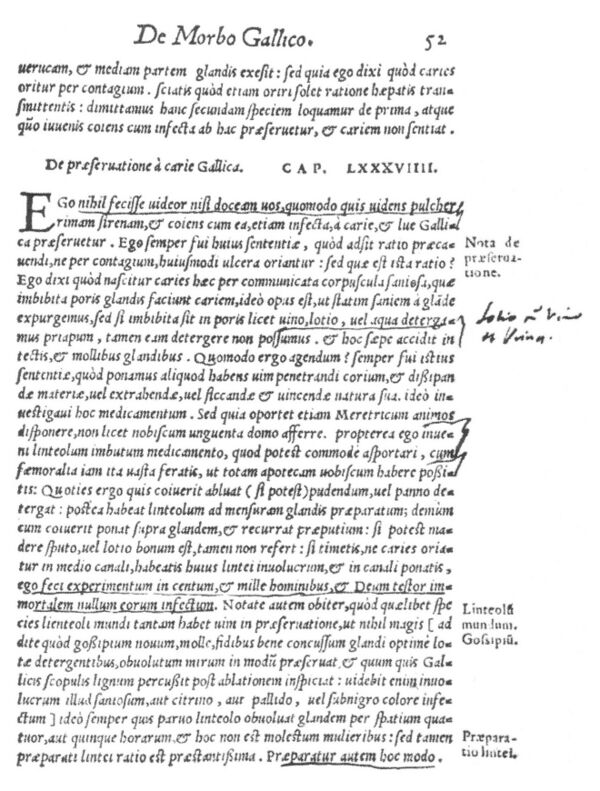 De Morbo Gallico. 52
uerucam, & mediam partem glandis exesit: sed quia ego dixi quòd caries
oritur per contagium. sciatis quòd etiam oriri solet ratione hæpatis tran=
smittentis: dimittamus hanc secundam speciem loquamur de prima, atque
quõ iuuenis coiens cum infecta ab hac præseruetur, & cariem non sentiat.
De præseruatione à carie Gallica. CAP. LXXXVIIII.
EGo nihil fecisse uideor nisi doceam uos, quomodo quis uidens pulcher
rimam sirenam, & coiens cum ea, etiam infecta, à carie, & lue Galli=
ca præseruetur. Ego semper fui huius sententiæ, quòd adsit ratio præca=
uendi, ne per contagium, huiusmodi ulcera oriantur: sed quæ est ista ratio?
Nota de
præserua=
tione.
Ego dixi quòd nascitur caries hæc per communicata corpuscula saniosa, quæ
imbibita poris glandis faciunt cariem, ideò opus est, ut statim saniem à glãde
expurgemus, sed si imbibita sit in poris licet uino, lotio, uel aqua deterga=
mus priapum, tamen eam detergere non possumus. & hoc sæpe accidit in
tectis, & mollibus glandibus. Quomodo ergo agendum? semper fui istius
sententiæ, quòd ponamus aliquod habens uim penetrandi corium, & dissipan
dæ materiæ, uel extrahendæ, uel siccandæ & uincendæ natura sua. ideò in=
uestigaui hoc medicamentum. Sed quia oportet etiam Meretricum animos
disponere, non licet nobiscum unguenta domo afferre. propterea ego inue=
ni linteolum imbutum medicamento, quod potest commodè asportari, cum
fæmoralia iam ita uasta feratis, ut totam apotecam uobiscum habere possi=
tis: Quoties ergo quis coiuerit abluat (si potest) pudendum, uel panno de=
tergat: postea habeat linteolum ad mensuram glandis præparatum; demùm
cum coiuerit ponat supra glandem, & recurrat præputium: si potest ma=
dere sputo, uel lotio bonum est, tamen non refert: si timetis, ne caries oria=
tur in medio canali, habeatis huius lintei inuolucrum, & in canali ponatis,
ego feci experimentum in centum, & mille hominibus, & Deum testor im=
mortalem nullum eorum infectum. Notate autem obiter, quòd quælibet spe
cies lienteoli mundi tantam habet uim in præseruatione, ut nihil magis [ad
dite quòd goßipium nouum, molle, fidibus bene concussum glandi optimè lo=
tæ detergentibus, obuolutum mirum in modũ præseruat, & quum quis Gal=
licis scopulis lignum percußit post ablationem inspiciat: uidebit enim inuo=
lucrum illud saniosum, aut citrino, aut pallido, uel subnigro colore infe=
ctum] ideò semper quis paruo linteolo obuoluat glandem per spatium qua=
tuor, aut quinque horarum, & hoc non est molestum mulieribus: sed tamen
præparati lintei ratio est præstantißima. Præparatur autem hoc modo.
Linteolũ
mundum.
Gossipiũ.
Præpara=
tio lintei.